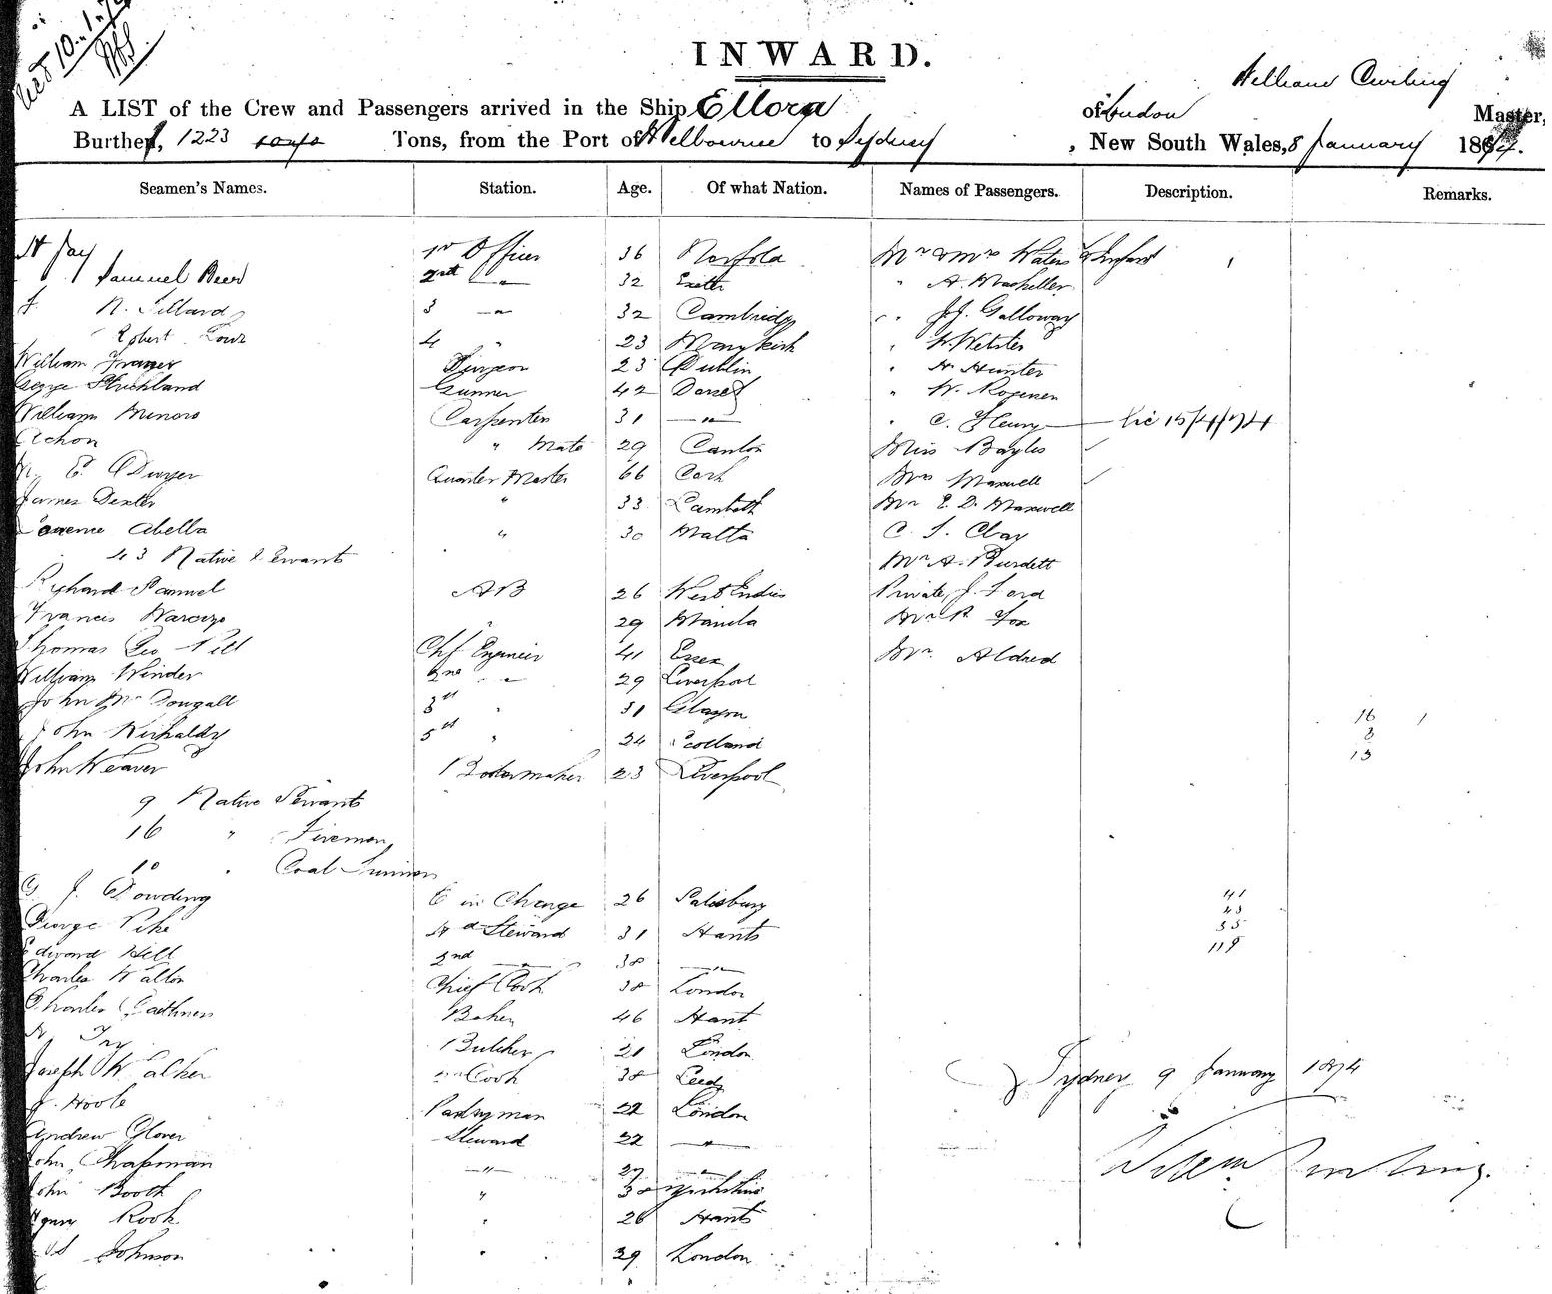 Recd 10.1.74
INWARD.
William Curling
A LIST of the Crew and Passengers arrived in the Ship Ellora of London Master,
Burthen, 1223 Tons, from the Port of Melbourne to Sydney, New South Wales, 8 January 1874.
Seamen's Names. Station. Age. Of what Nation. Names of Passengers. Description. Remarks.
Jay 1st Officer 36 Norfolk Mr & Mrs Waters & Infant 1
Samuel Beer 2nd " 32 Exeter " A. Mackellar
N. Tillard 3 " 32 Cambridge " J.J. Galloway
Robert 4 " 23 Marykirk " Webster
William Frazer Surgeon 23 Dublin " Hunter
George Strickland Gunner 42 Dorset " W.
William Minors Carpenter 31 " " C. Fleury 15/4/74
Achon " Mate 29 Canton Miss Bayles
E. O'Dwyer Quarter Master 66 Cork Mrs Maxwell
James Dexter " 33 Lambeth Mr E. D. Maxwell
Abella " 30 Malta C. T. Clay
43 Native Servants Mr A. Burdett
Richard Samuel AB 26 West Indies Private J. Ford
Francis " 29 Manila Mr R. Fox
Thomas Geo Chf Engineer 41 Essex Mr. Aldred
William Winder 2nd " 29 Liverpool
John McDougall 3rd " 31 Glasgow 16 1
John Kirkaldy 5th " 24 Scotland 3
John Weaver Boilermaker 23 Liverpool 13
9 Native Servants
16 " Firemen
10 " Coal Trimmers
G J. Dowding E in Charge 26 Salisbury 41
George Pike Steward 31 Hants 43
Edward Hill 2nd " 38 " 35
Charles Walton Chief Cook 38 London 119
Charles Caithness Baker 46 Hant
Try Butcher 21 London
Joseph Walker 2nd Cook 38 Leeds Sydney 9 January 1874
J. Hoole Pantryman 22 London
Andrew Glover Steward 32 "
John Chapman " 27 " Willm Curling.
John Booth " 38 Yorkshire
Henry Rook " 26 Hants
Johnson " 39 London